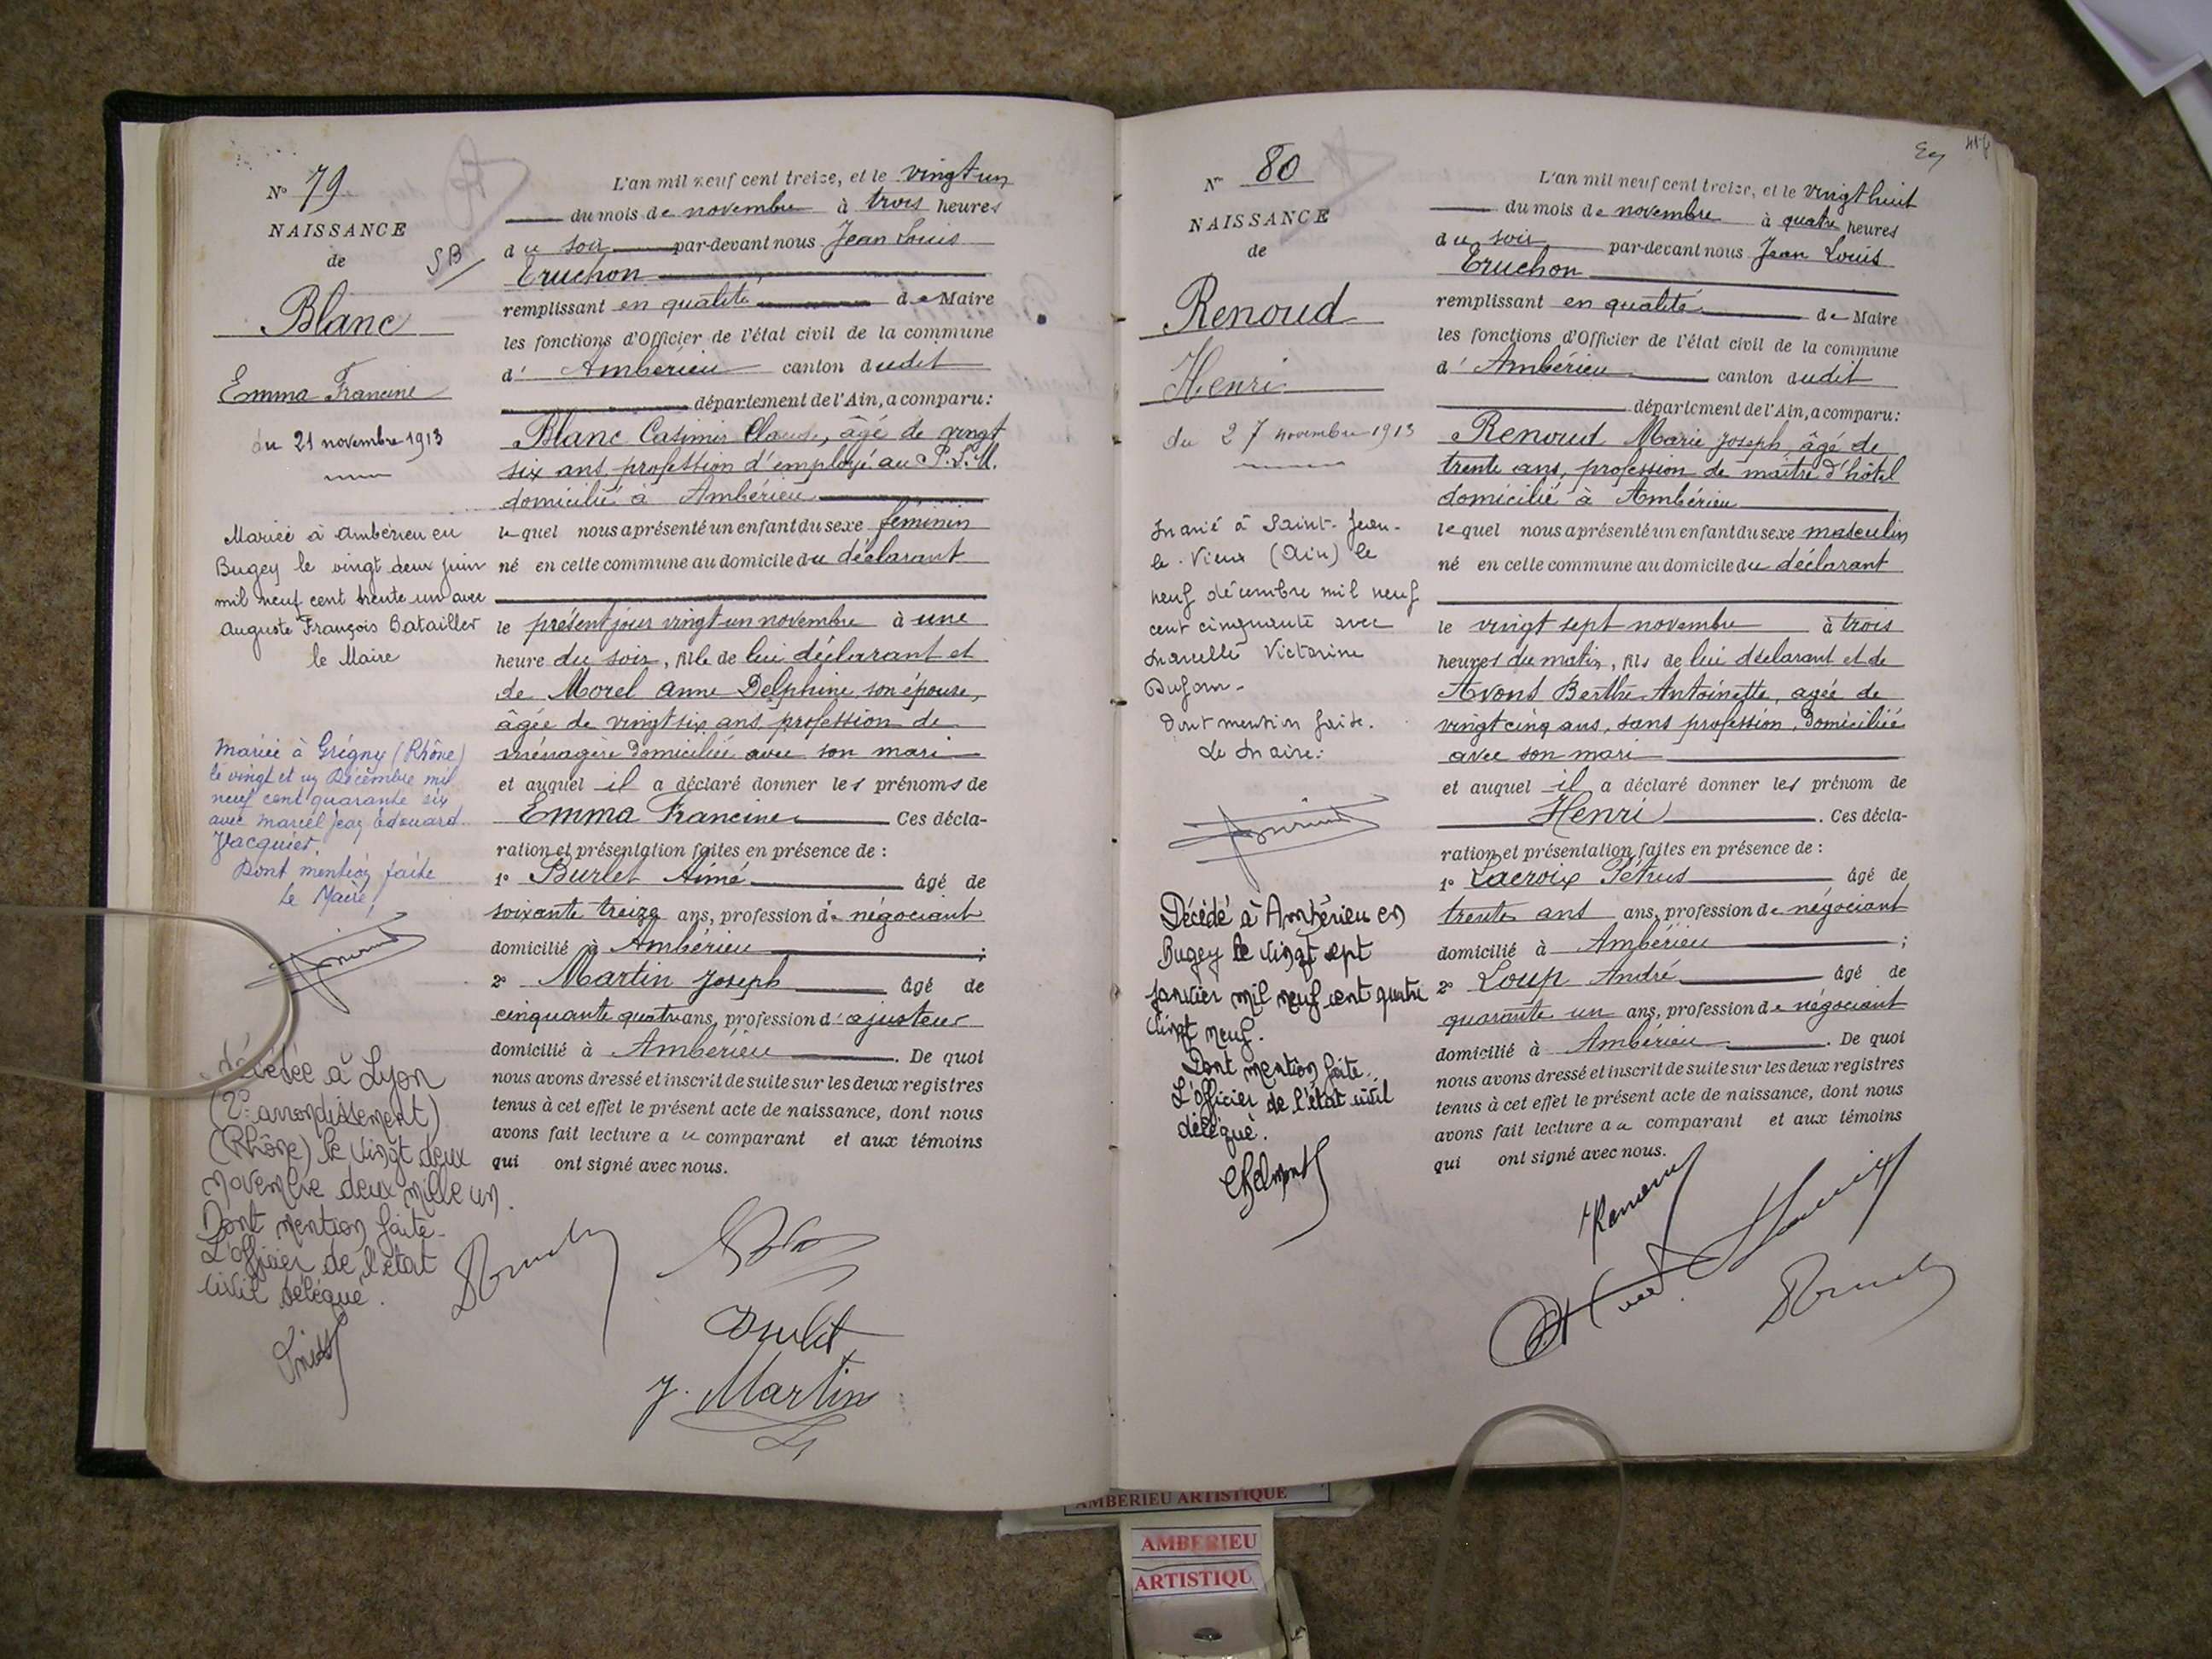 N° 79
NAISSANCE
de
Blanc
Emma Francine
du 21 novembre 1913
SB
Mariée à Ambérieu en
Bugey le vingt deux juin
mil neuf cent trente un avec
Auguste François Batailler
le Maire
Mariée à Grigny (Rhône)
le vingt et un Décembre mil
neuf cent quarante six
avec Marcel Jean Edouard
Jacquier.
Dont mention faite
le Maire,
décédée à Lyon
(2e arrondissement)
(Rhône) le vingt deux
novembre deux mille un.
Dont mention faite.
L'officier de l'état
civil délégué.
L'an mil neuf cent treize, et le vingt un
du mois de novembre à trois heures
du soir par-devant nous Jean Louis
Eruchon
remplissant en qualité de Maire
les fonctions d'Officier de l'état civil de la commune
d' Ambérieu canton dudit
département de l'Ain, a comparu:
Blanc Casimir Claude, âgé de vingt
six ans, profession d'employé au P.L.M.
domicilié à Ambérieu
lequel nous a présenté un enfant du sexe féminin
né en cette commune au domicile du déclarant
le présent jour vingt un novembre à une
heure du soir, fille de lui déclarant et
de Morel Anne Delphine, son épouse,
âgée de vingt six ans, profession de
ménagère Domiciliée avec son mari
et auquel il a déclaré donner les prénoms de
Emma Francine Ces décla-
ration et présentation faites en présence de :
1° Burlet Aimé âgé de
soixante treize ans, profession de négociant
domicilié à Ambérieu ;
2° Martin Joseph âgé de
cinquante quatre ans, profession d'ajusteur
domicilié à Ambérieu . De quoi
nous avons dressé et inscrit de suite sur les deux registres
tenus à cet effet le présent acte de naissance, dont nous
avons fait lecture au comparant et aux témoins
qui ont signé avec nous.
Burlet
J. Martin
N° 80
NAISSANCE
de
Renoud
Henri
du 27 novembre 1913
Marié à Saint-Jean-
le-Vieux (Ain) le
neuf décembre mil neuf
cent cinquante avec
Marcelle Victorine
Dufour.
Dont mention faite.
Le Maire:
Décédé à Ambérieu en
Bugey le vingt sept
janvier mil neuf cent quatre
vingt neuf.
Dont mention faite.
L'officier de l'état civil
délégué.
L'an mil neuf cent treize, et le vingt huit
du mois de novembre à quatre heures
du soir par-devant nous Jean Louis
Eruchon
remplissant en qualité de Maire
les fonctions d'Officier de l'état civil de la commune
d' Ambérieu canton dudit
département de l'Ain, a comparu:
Renoud Marie Joseph, âgé de
trente ans, profession de maître d'hôtel
domicilié à Ambérieu
lequel nous a présenté un enfant du sexe masculin
né en cette commune au domicile du déclarant
le vingt sept novembre à trois
heures du matin, fils de lui déclarant et de
Avons Berthe Antoinette, agée de
vingt cinq ans, sans profession, Domiciliée
avec son mari
et auquel il a déclaré donner les prénom de
Henri . Ces décla-
ration et présentation faites en présence de :
1° Lacroix Pétrus âgé de
trente ans ans, profession de négociant
domicilié à Ambérieu ;
2° Loup André âgé de
quarante un ans, profession de négociant
domicilié à Ambérieu . De quoi
nous avons dressé et inscrit de suite sur les deux registres
tenus à cet effet le présent acte de naissance, dont nous
avons fait lecture au comparant et aux témoins
qui ont signé avec nous.
AMBERIEU ARTISTIQUE
AMBERIEU
ARTISTIQU